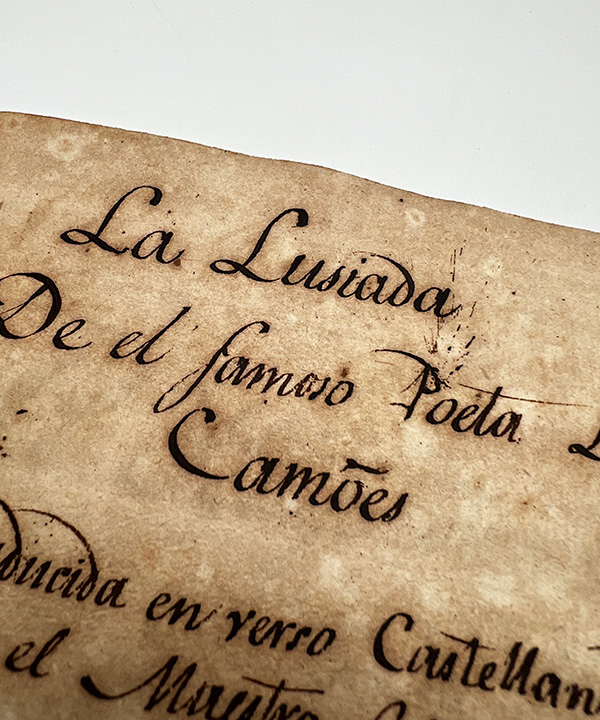 La Lusiada
De el famoso Poeta L
Camões
ducida en verso Castellan
el Maestro